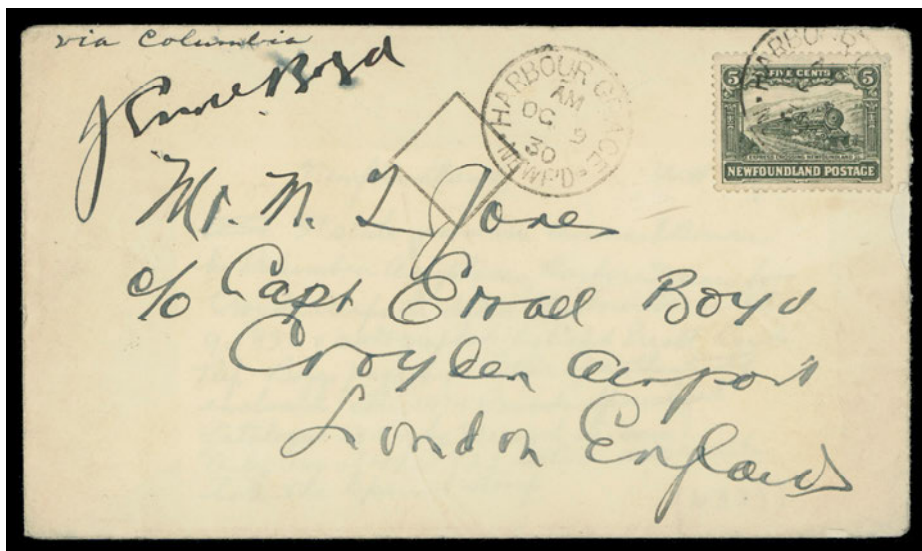 via Columbia
J Errol Boyd
HARBOUR GRACE
AM
OC 9
30
NEWF'D
5 FIVE CENTS 5
EXPRESS CROSSING NEWFOUNDLAND
NEWFOUNDLAND POSTAGE
HARBOUR
Mr. N. L Jones
c/o Capt Erroll Boyd
Croyden Airport
London England